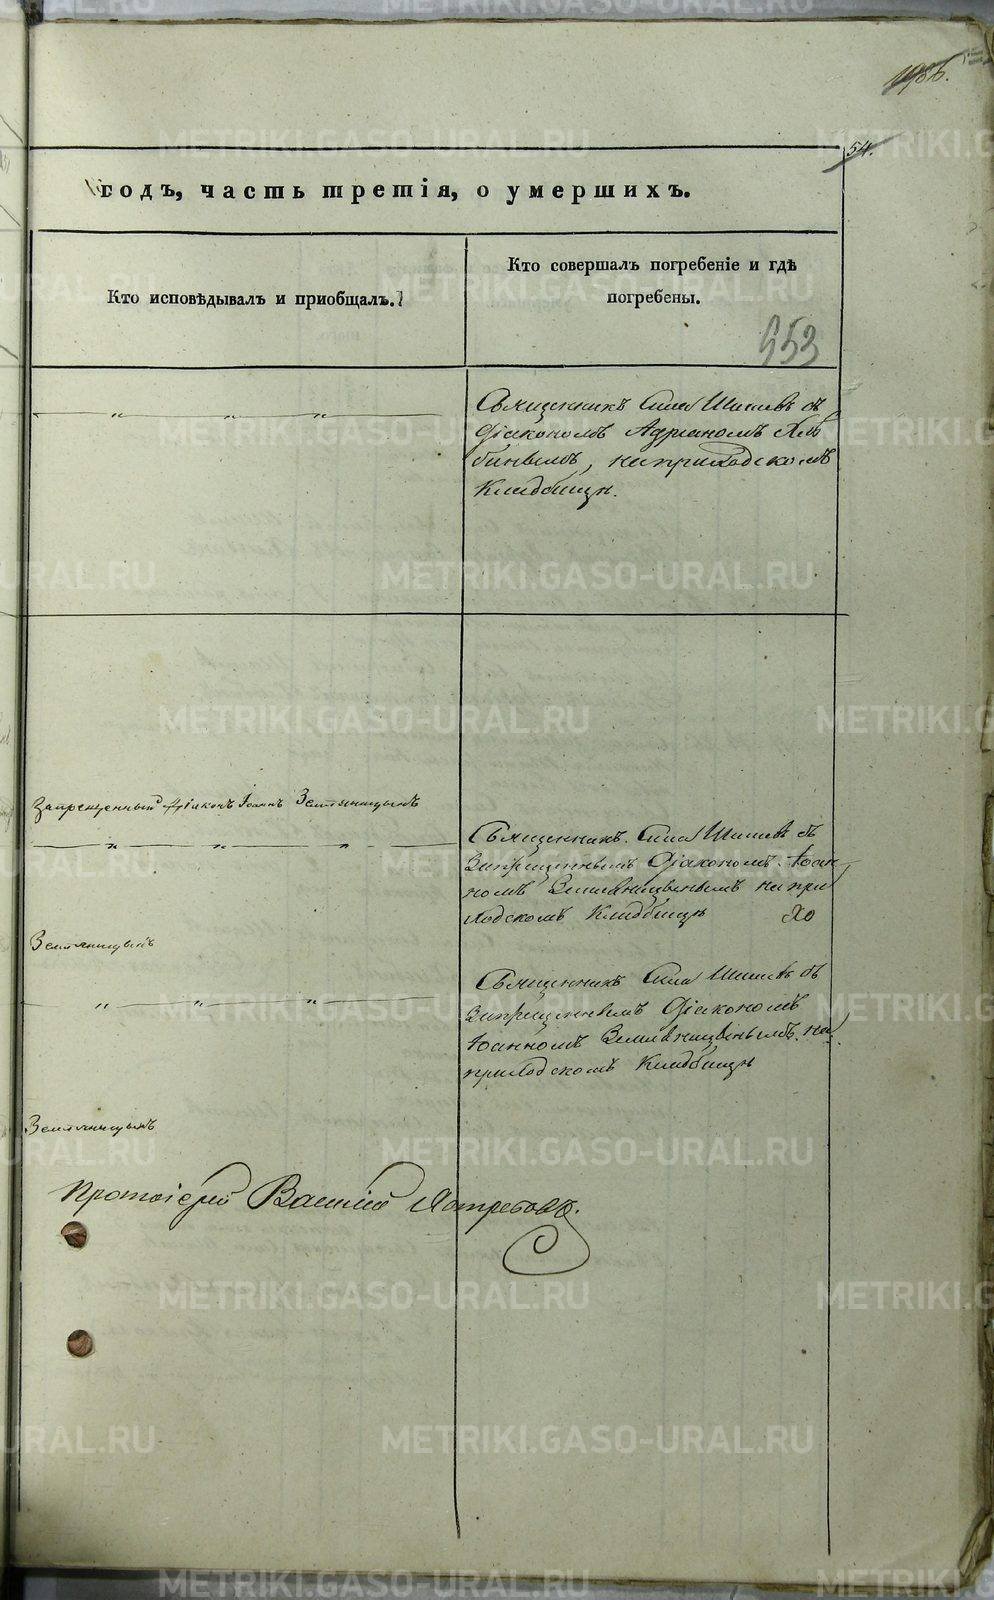 54.
годъ, часть третія, о умершихъ.
Кто исповѣдывалъ и приобщалъ.
Кто совершалъ погребеніе и гдѣ
погребены.
953
Священникъ Сила Шишевъ съ
Діакономъ Адріаномъ Хлѣ
бинымъ, на приходскомъ
Кладбищѣ.
Запрещенный Діаконъ Іоаннъ Земляницынъ
Священникъ Сила Шишевъ съ
Запрещеннымъ Діакономъ Іоан-
номъ Земляницынымъ на при
ходскомъ Кладбищѣ
Земляницынъ
Священникъ Сила Шишевъ съ
Запрещеннымъ Діакономъ
Іоанномъ Земляницынымъ на
приходскомъ Кладбищѣ
Земляницынъ
Протоіерей Василій Ястребовъ.
METRIKI.GASO-URAL.RU